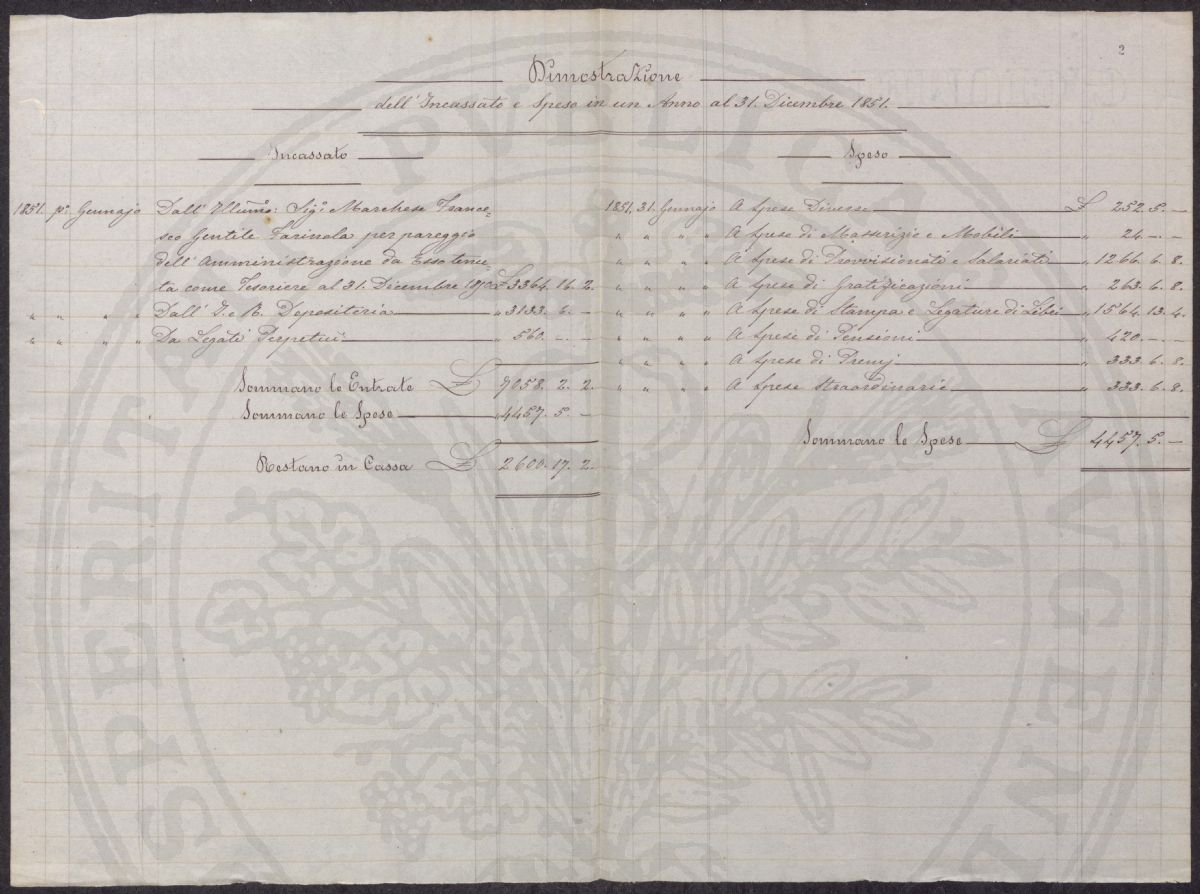 2
Dimostrazione
dell'Incassato e Speso in un Anno al 31. Dicembre 1851.
Incassato
1851. p.º Gennajo Dall'Illumo: Sigr. Marchese France=
sco Gentile Farinola per pareggio
dell'Amministrazione da Esso tenu=
ta come Tesoriere al 31. Dicembre 1850 £ 3364. 16. 2.
" " " " Dall'I. e R. Depositeria " 3133. 6. –
" " " " Da Legati Perpetui " 560. –. –
Sommano le Entrate £ 7058. 2. 2.
Sommano le Spese " 4457. 5. –
Restano in Cassa £ 2600. 17. 2.
Speso
1851. 31. Gennajo A Spese Diverse £ 252. 5. –
" " " " A Spese di Masserizie e Mobili " 24. –. –
" " " " A Spese di Provvisionati e Salariati " 1266. 6. 8.
" " " " A Spese di Gratificazioni " 263. 6. 8.
" " " " A Spese di Stampa e Legature di Libri " 1564. 13. 4.
" " " " A Spese di Pensioni " 420. –. –
" " " " A Spese di Premj " 333. 6. 8.
" " " " A Spese Straordinarie " 333. 6. 8.
Sommano le Spese £ 4457. 5. –
SPERITA PVBLICA AVGEN